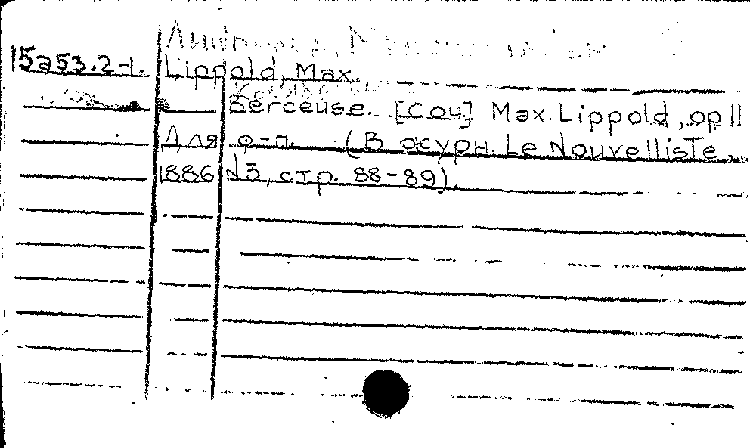 15253.2-1. Lippold, Max.
Berceuse. [Соч] Max Lippold, op 11
Для ф-п. (В журн. Le Nouvelliste,
1886 №3, стр. 88-89).